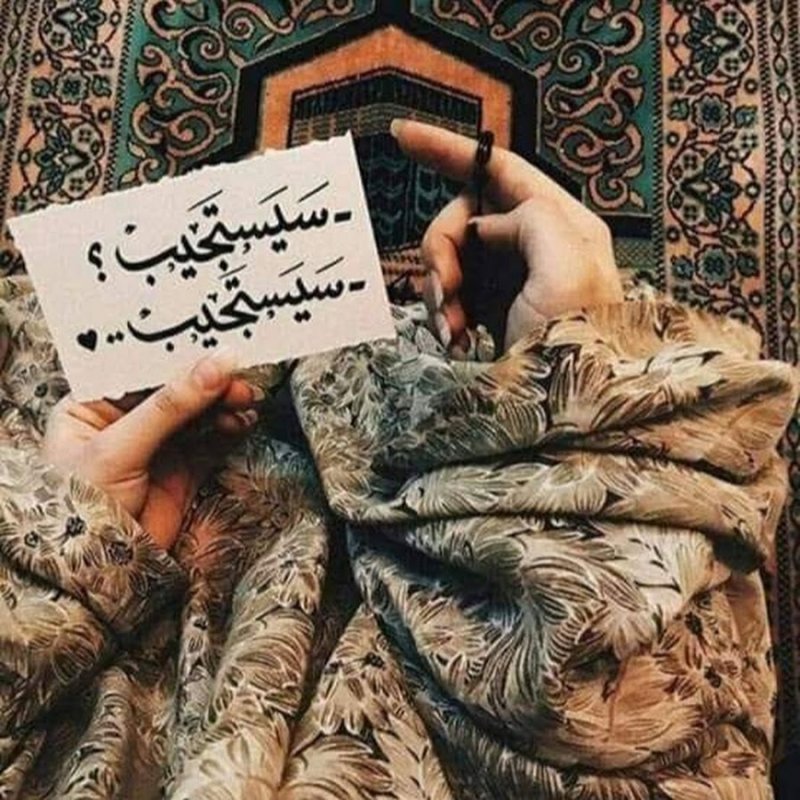 - سَيَستَجَيبْ ؟
- سَيَستَجَيبْ .. ♥